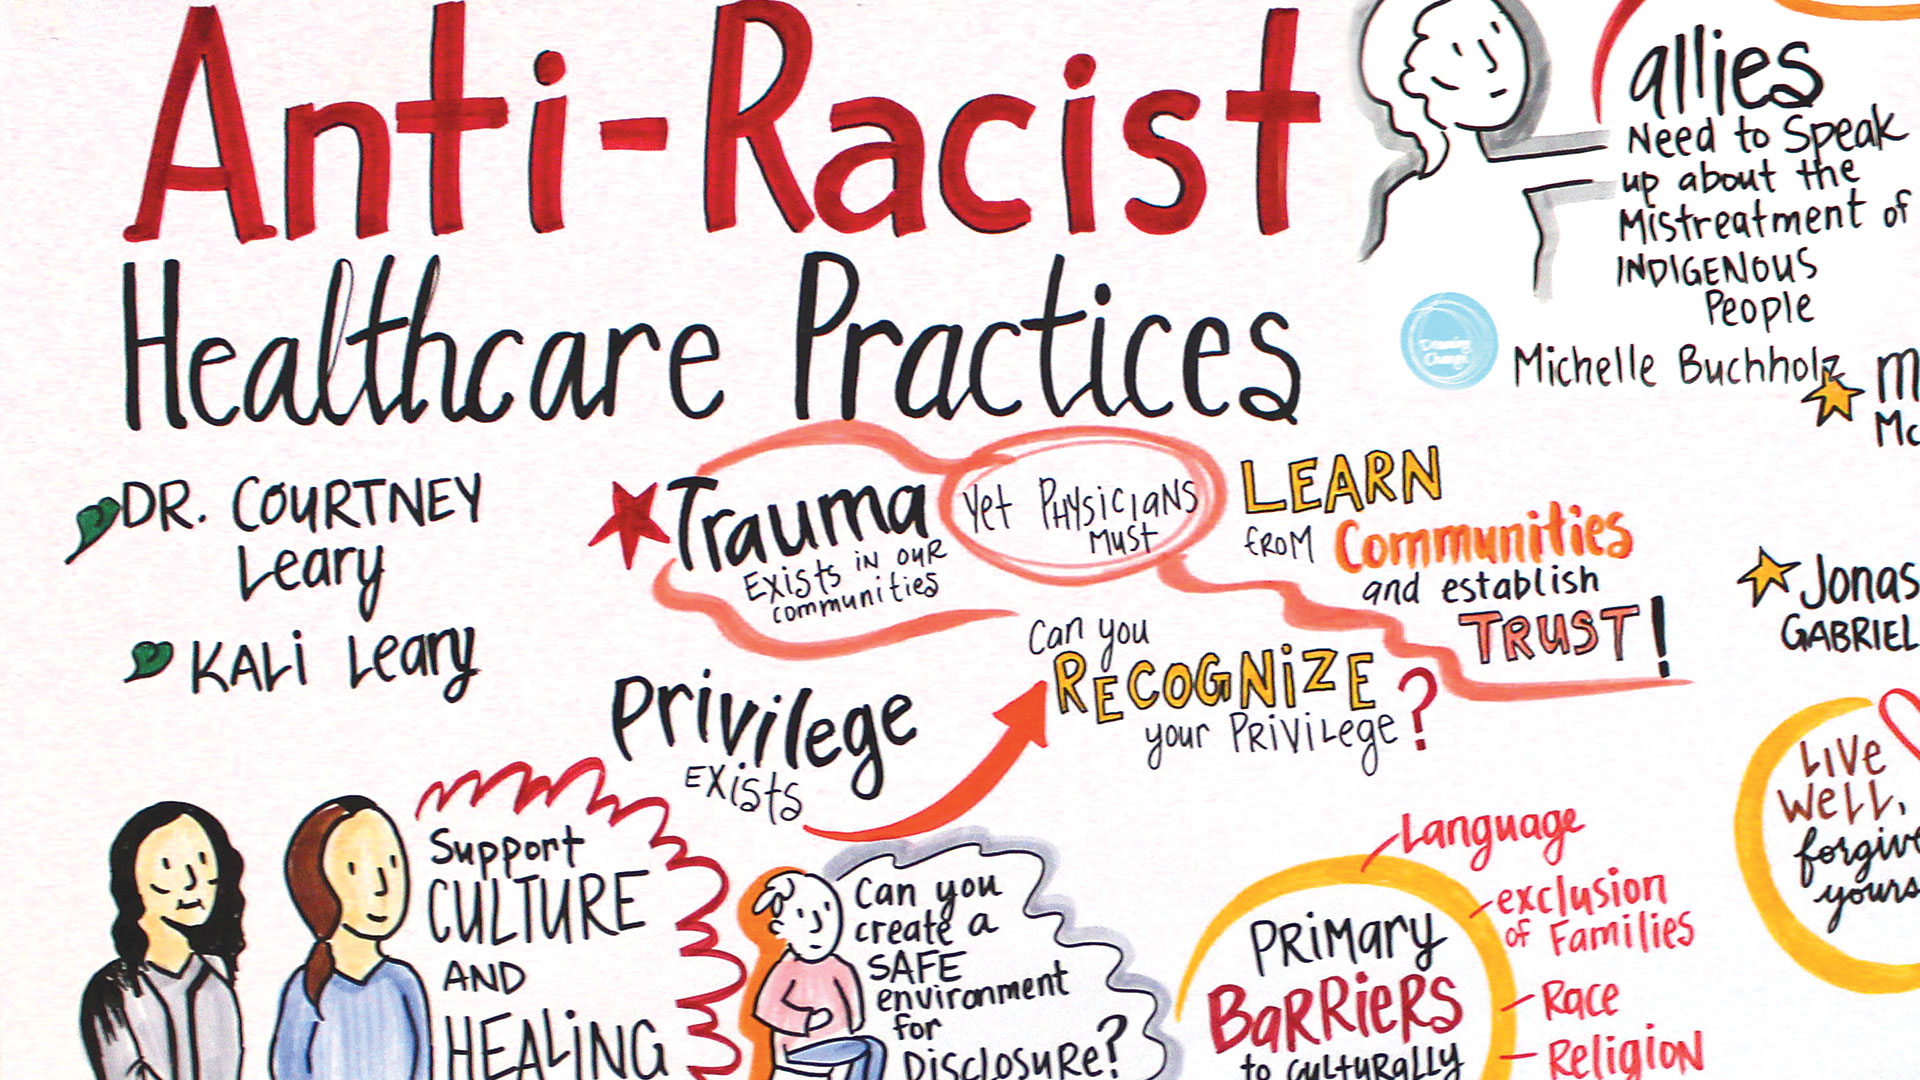 Anti-Racist
Healthcare Practices
DR. COURTNEY
Leary
KALI Leary
Trauma
EXISTS IN OUR
communities
Yet PHYSICIANS
MUST
LEARN
FROM Communities
and establish
TRUST!
Privilege
EXISTS
Can you
RECOGNIZE
your PRIVILEGE?
allies
Need to Speak
up about the
Mistreatment of
INDIGENOUS
People
Drawing
Change
Michelle Buchholz
Jonas
GABRIEL
LIVE
WELL,
Support
CULTURE
AND
HEALING
Can you
create a
SAFE
environment
for
DISCLOSURE?
PRIMARY
BARRIERS
to culturally
Language
exclusion
of Families
Race
Religion